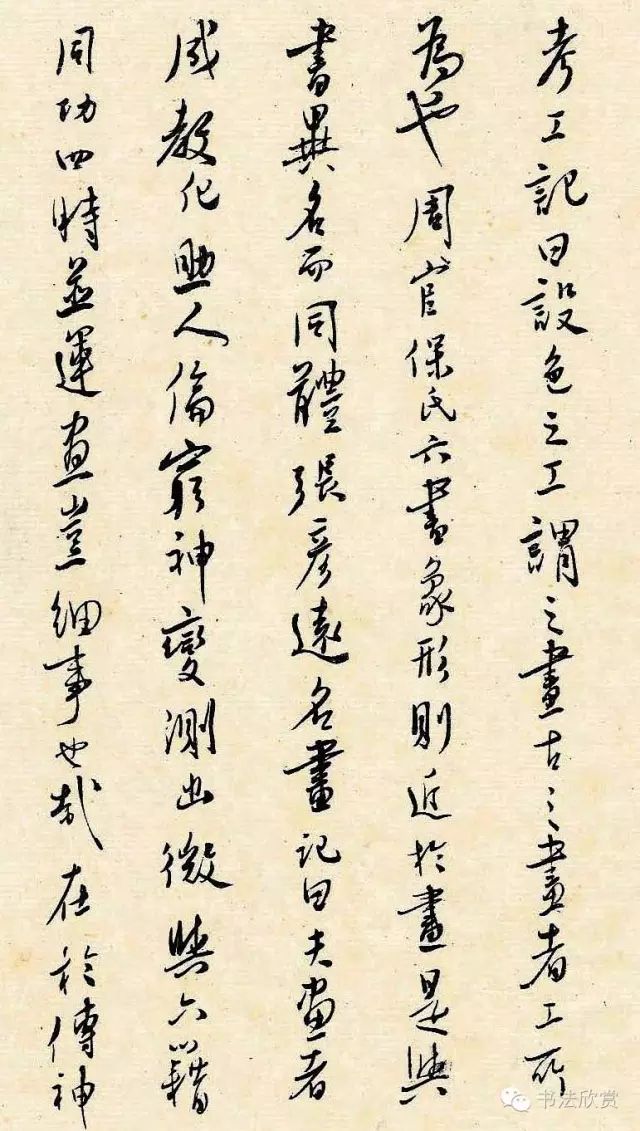 考工記曰設色之工謂之畫古之畫者工所
為也周官保氏六書象形則近於畫是與
書異名而同體張彥遠名畫記曰夫畫者
成教化助人倫窮神變測幽微與六籍
同功四時並運畫豈細事也哉在於傳神
书法欣赏